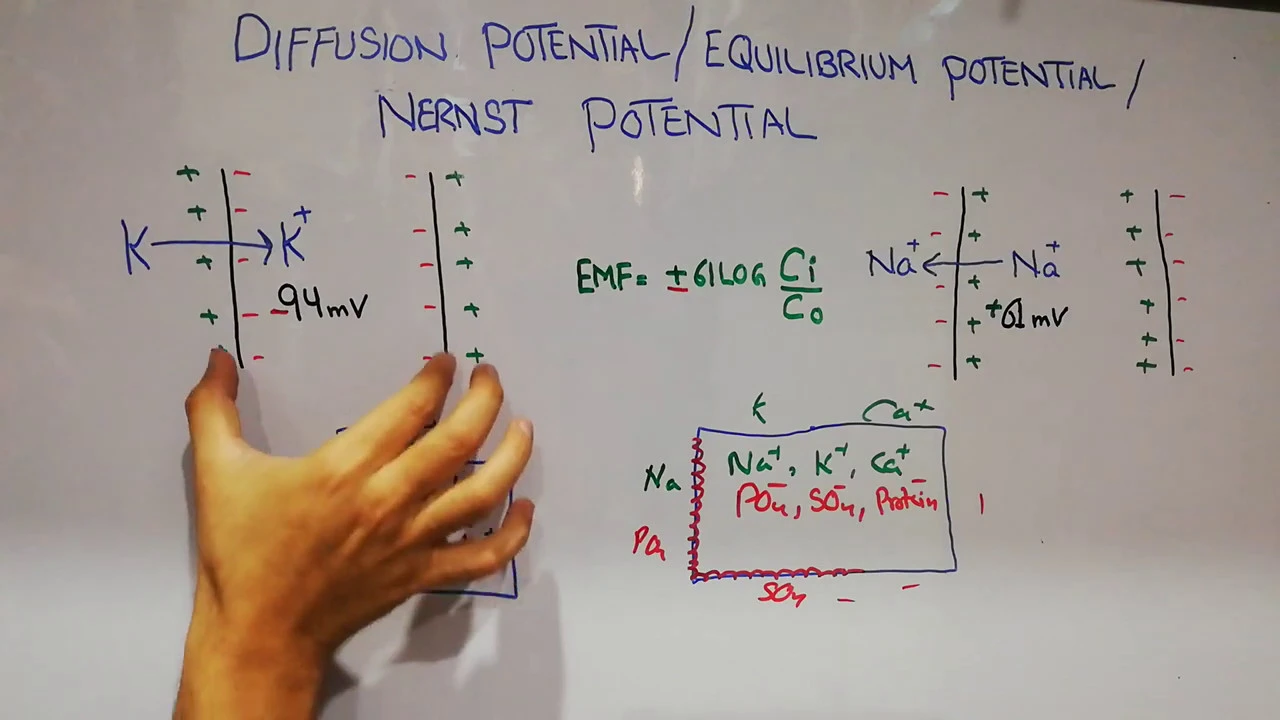 DIFFUSION POTENTIAL/EQUILIBRIUM POTENTIAL/
NERNST POTENTIAL
K → K+
-94mV
EMF= ±61LOG Ci/Co
Na+ ← Na+
+61mV
K Ca+
Na
Na+, K+, Ca+
PO4-, SO4-, Protein-
PO4
SO4